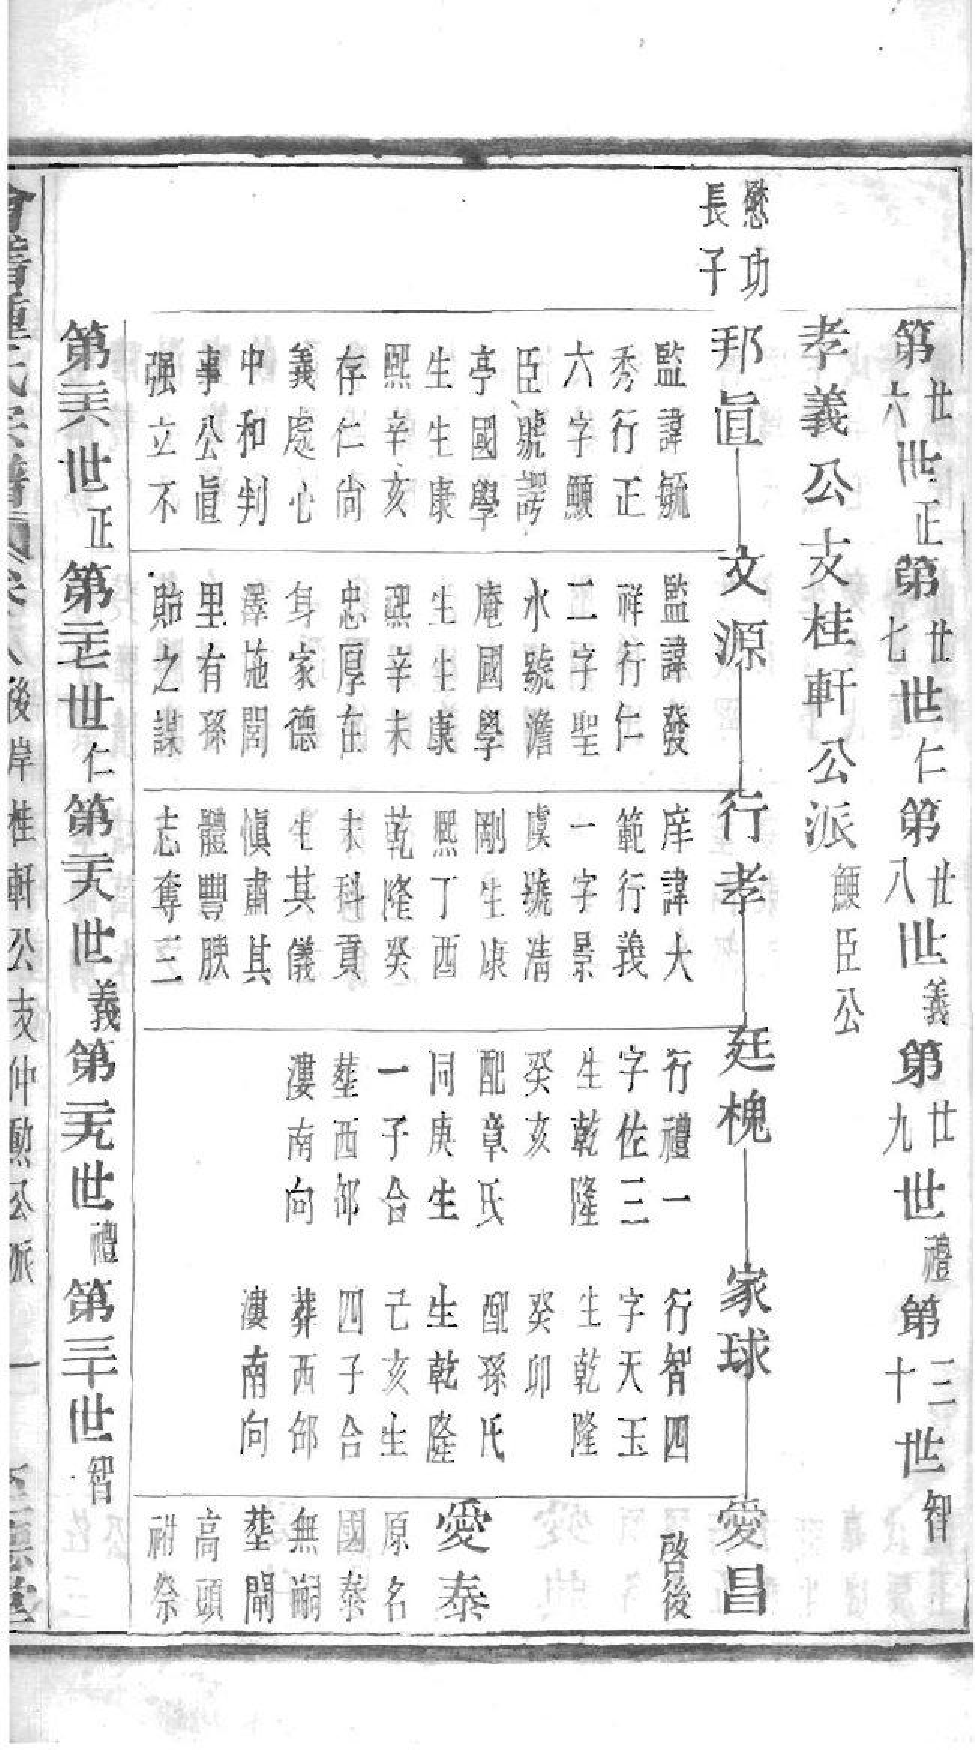 第廿六世正第廿七世仁第廿八世義第廿九世禮第三十世智
孝義公支桂軒公派鯁臣公
懋功
長子
邦直
監諱毓
秀行正
六字鯁
臣號諤
亭國學
生生康
熙辛亥
存仁尚
義處心
中和判
事公直
强立不
文源
監諱發
祥行仁
二字聖
水號澹
庵國學
生生康
熙辛未
忠厚在
身家德
澤施閭
里有孫
貽之謀
行孝
庠諱大
範行義
一字景
虞號清
剛生康
熙丁酉
乾隆癸
未科貢
生其儀
慎肅其
體豐腴
志奪三
廷槐
行禮一
字佐三
生乾隆
癸亥
配章氏
同庚生
一子合
塟西邨
漊南向
家球
行智四
字天玉
生乾隆
癸卯
配孫氏
生乾隆
己亥生
四子合
葬西邨
漊南向
愛昌
啓後
愛泰
原名
國泰
無嗣
塟閘
高頭
祔祭
第二十六世正第二十七世仁第二十八世義第二十九世禮第三十世智
後岸桂軒公支仲勲公派 一